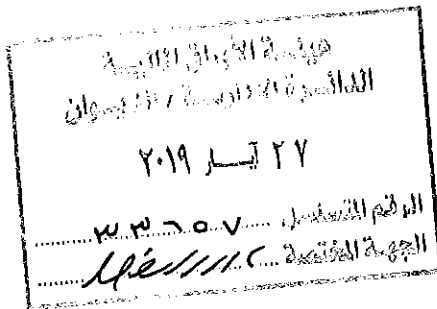 هيئة الأوراق المالية
الدائرة الادارية / الديوان
٢٧ آيــار ٢٠١٩
الرقم المتسلسل ٣٣٦٥٧
الجهة المختصة